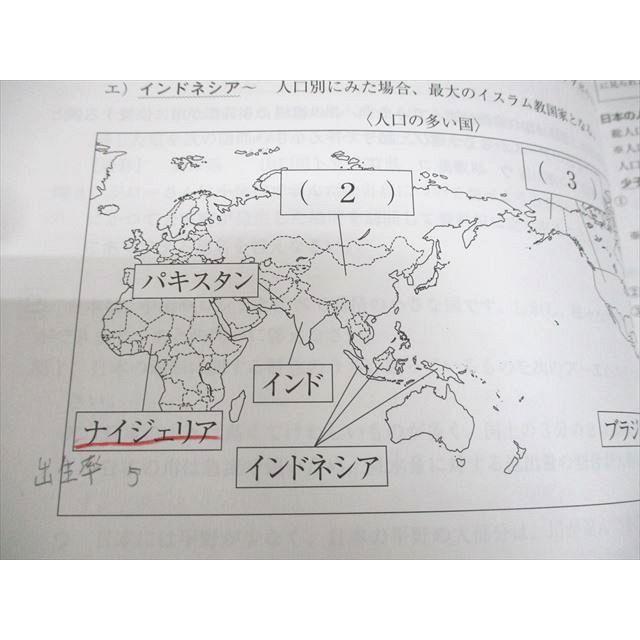 エ）インドネシア～　人口別にみた場合、最大のイスラム教国家となる。
〈人口の多い国〉
（　2　）
（　3　）
パキスタン
インド
ナイジェリア
インドネシア
ブラジ
出生率 5
日本の人
※人口
人口
少子
①